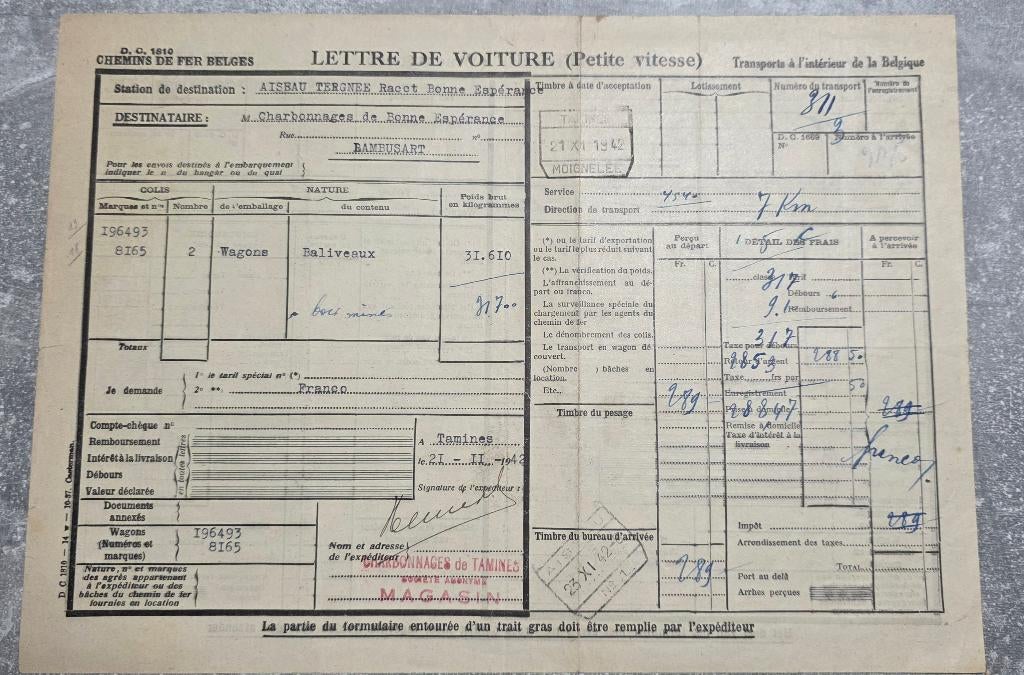 D. C. 1810
CHEMINS DE FER BELGES
LETTRE DE VOITURE (Petite vitesse)
Transports à l'intérieur de la Belgique
Station de destination : AISEAU TERGNEE Racct Bonne Espérance
DESTINATAIRE : M Charbonnages de Bonne Espérance
Rue n°
LAMBUSART
Pour les envois destinés à l'embarquement
indiquer le n° du hangar ou du quai
COLIS NATURE Poids brut
en kilogrammes
Marques et nos Nombre de l'emballage du contenu
196493
8165 2 Wagons Baliveaux 31.610
bois mines 31700
Totaux
Je demande
1° le tarif spécial n° (*)
2° **. Franco
Compte-chèque n°
Remboursement
Intérêt à la livraison
Débours
Valeur déclarée
en toutes lettres
A Tamines
le 21 - II - 1942
Signature de l'expéditeur :
Documents
annexés
Wagons
(Numéros et
marques)
196493
8165
Nature, n° et marques
des agrès appartenant
à l'expéditeur ou des
bâches du chemin de fer
fournies en location
Nom et adresse
de l'expéditeur
CHARBONNAGES de TAMINES
SOCIÉTÉ ANONYME
MAGASIN
D C 1810 — 14 — 10-37. Casterman.
Timbre à date d'acceptation
TAMINES
21 XI 1942
MOIGNELEE
Lotissement
Numéro du transport
311
Numéro de
l'enregistrement
D. C. 1669
N°
Numéro à l'arrivée
Service
Direction de transport 7 Km
(*) ou le tarif d'exportation
ou le tarif le plus réduit suivant
le cas.
(**) La vérification du poids.
L'affranchissement au dé-
part ou franco.
La surveillance spéciale du
chargement par les agents du
chemin de fer
Le dénombrement des colis.
Le transport en wagon dé-
couvert.
(Nombre ) bâches en
location.
Etc.,
Timbre du pesage
Timbre du bureau d'arrivée
23 XI 42
N° 1
Perçu
au départ
Fr. C.
289
289
DÉTAIL DES FRAIS
classe tarif
317
Débours
9.1
Remboursement
317
Taxe pour débours
2853
Retour d'argent
288 50
Taxe frs par
Enregistrement 50
Prise à domicile
28847
Remise à domicile
Taxe d'intérêt à la
livraison
A percevoir
à l'arrivée
Fr. C.
289
franco
Impôt 289
Arrondissement des taxes
TOTAL
Port au delà
Arrhes perçues
La partie du formulaire entourée d'un trait gras doit être remplie par l'expéditeur